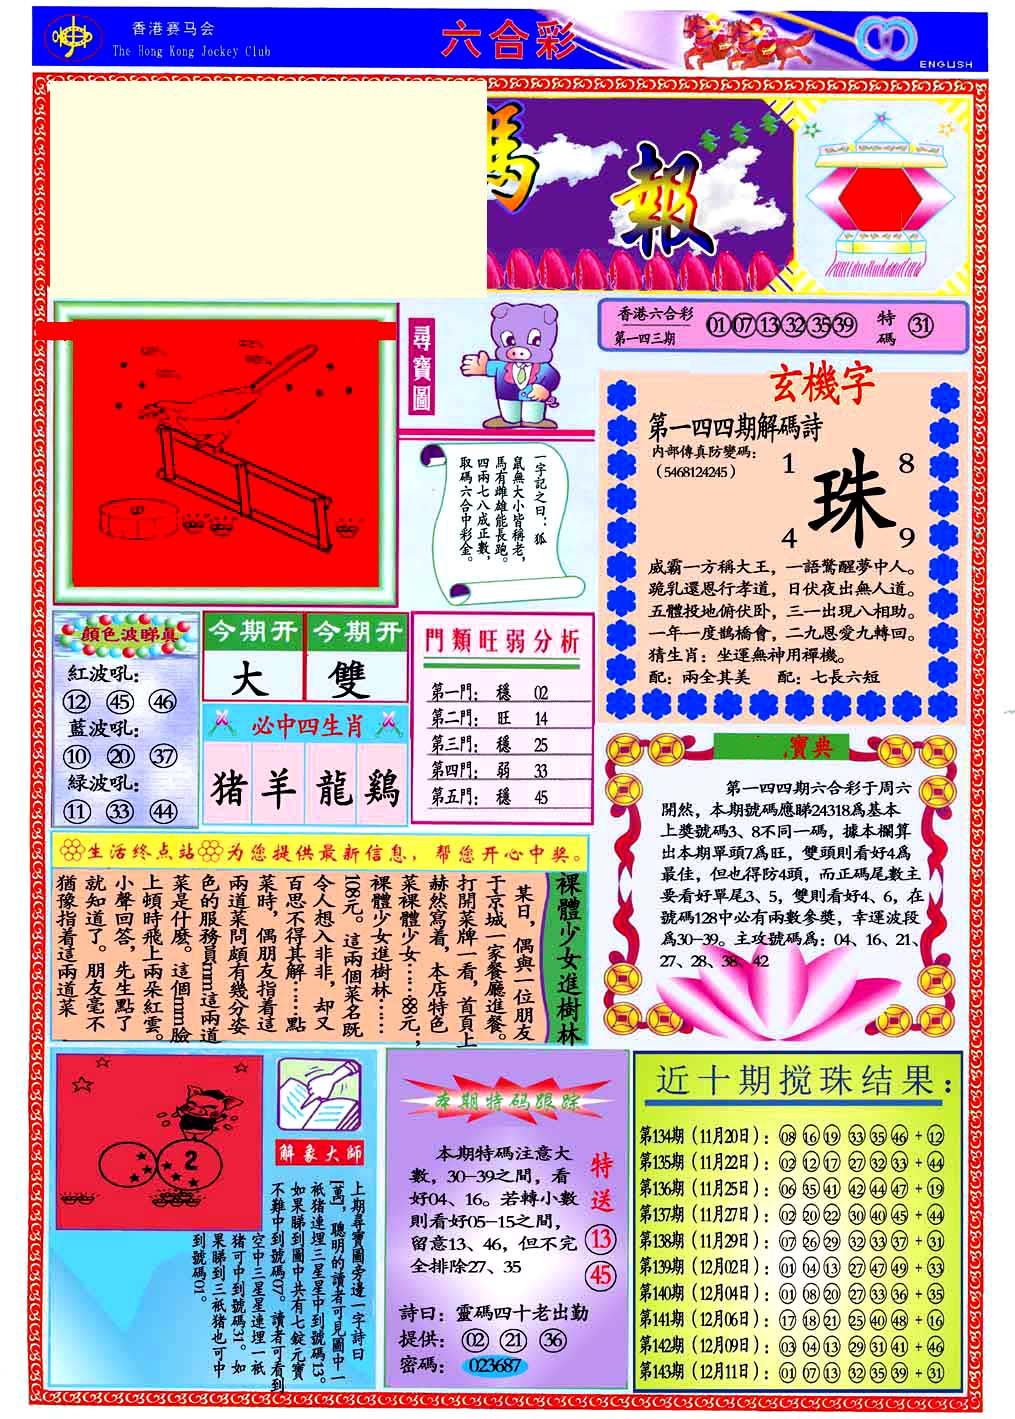 香港赛马会
The Hong Kong Jockey Club
六合彩
ENGLISH
馬報
尋寶圖
香港六合彩
第一四三期
01 07 13 32 35 39
特碼
31
一字記之曰：狐
鼠無大小皆稱老，
馬有雌雄能長跑。
四兩七八成正數，
取碼六合中彩金。
玄機字
第一四四期解碼詩
内部傳真防變碼：
（5468124245）
1 8
珠
4 9
威霸一方稱大王，一語驚醒夢中人。
跪乳還恩行孝道，日伏夜出無人道。
五體投地俯伏卧，三一出現八相助。
一年一度鵲橋會，二九恩愛九轉回。
猜生肖：坐運無神用禪機。
配：兩全其美 配：七長六短
顏色波睇真
紅波吼：
12 45 46
藍波吼：
10 20 37
綠波吼：
11 33 44
今期开 今期开
大 雙
必中四生肖
猪 羊 龍 鷄
門類旺弱分析
第一門： 穩 02
第二門： 旺 14
第三門： 穩 25
第四門： 弱 33
第五門： 穩 45
寶典
第一四四期六合彩于周六
開然，本期號碼應睇24318爲基本
上獎號碼3、8不同一碼，據本欄算
出本期單頭7爲旺，雙頭則看好4爲
最佳，但也得防4頭，而正碼尾數主
要看好單尾3、5，雙則看好4、6，在
號碼128中必有兩數參獎，幸運波段
爲30-39。主攻號碼爲：04、16、21、
27、28、38、42
生活终点站 为您提供最新信息，帮您开心中奖。
裸體少女進樹林
某日，偶與一位朋友
于京城一家餐廳進餐。
打開菜牌一看，首頁上
赫然寫着，本店特色
菜裸體少女……88元；
裸體少女進樹林……
108元。這兩個菜名既
令人想入非非，却又
百思不得其解……點
菜時，偶朋友指着這
兩道菜問頗有幾分姿
色的服務員mm這兩道
菜是什麼。這個mm臉
上頓時飛上兩朵紅雲。
小聲回答，先生點了
就知道了。朋友毫不
猶豫指着這兩道菜
2
解象大師
上期尋寶圖旁邊一字詩曰
[萬]，聰明的讀者可見圖中一
祇猪連埋三星星中到號碼13。
如果睇到圖中共有七錠元寶
不難中到號碼07。讀者可看到
空中三星星連埋一祇
猪可中到號碼31。如
果睇到三祇猪也可中
到號碼01。
本期特码跟踪
本期特碼注意大
數，30-39之間，看
好04、16。若轉小數
則看好05-15之間，
留意13、46，但不完
全排除27、35
特送
13
45
詩曰：靈碼四十老出勤
提供： 02 21 36
密碼： 023687
近十期搅珠结果：
第134期（11月20日）：08 16 19 33 35 46 + 12
第135期（11月22日）：02 12 17 27 32 33 + 44
第136期（11月25日）：06 35 41 42 44 47 + 19
第137期（11月27日）：02 20 22 30 40 45 + 44
第138期（11月29日）：07 26 29 32 33 37 + 31
第139期（12月02日）：01 04 13 27 47 49 + 33
第140期（12月04日）：01 08 20 27 33 36 + 35
第141期（12月06日）：17 18 21 25 40 48 + 16
第142期（12月09日）：03 04 13 29 31 41 + 46
第143期（12月11日）：01 07 13 32 35 39 + 31